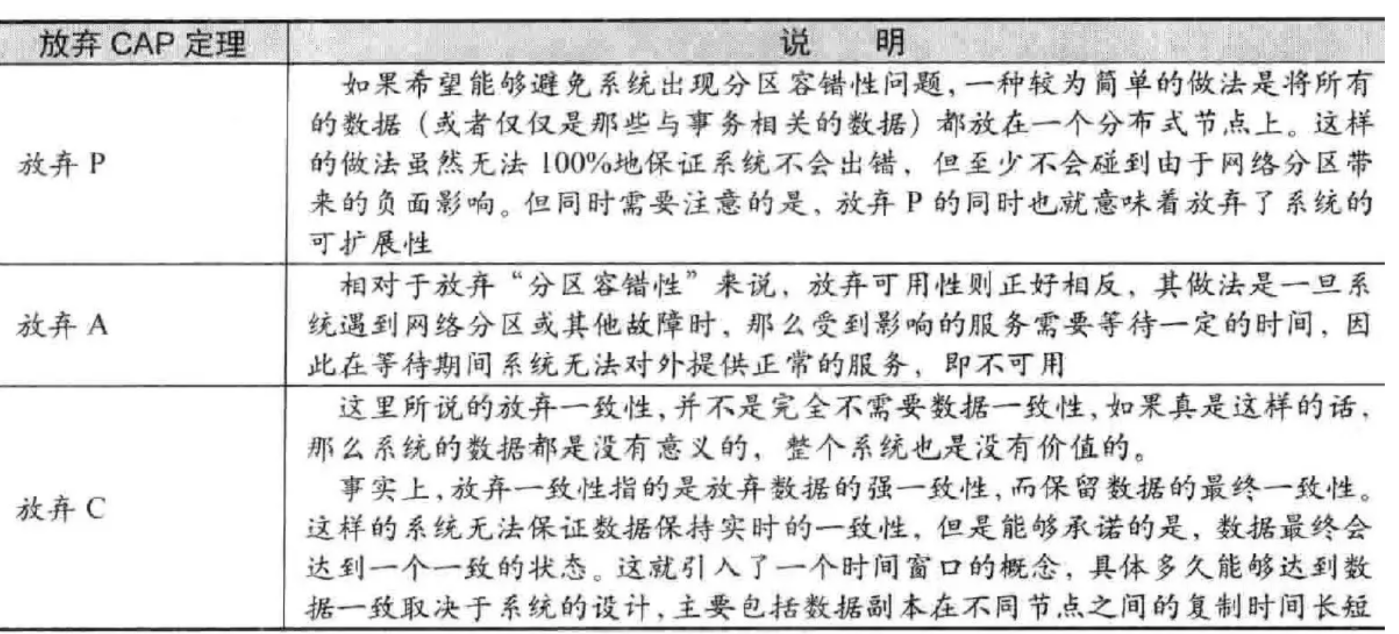 放弃 CAP 定理
说 明
放弃 P
如果希望能够避免系统出现分区容错性问题，一种较为简单的做法是将所有
的数据（或者仅仅是那些与事务相关的数据）都放在一个分布式节点上。这样
的做法虽然无法 100%地保证系统不会出错，但至少不会碰到由于网络分区带
来的负面影响。但同时需要注意的是，放弃 P 的同时也就意味着放弃了系统的
可扩展性
放弃 A
相对于放弃“分区容错性”来说，放弃可用性则正好相反，其做法是一旦系
统遇到网络分区或其他故障时，那么受到影响的服务需要等待一定的时间，因
此在等待期间系统无法对外提供正常的服务，即不可用
放弃 C
这里所说的放弃一致性，并不是完全不需要数据一致性，如果真是这样的话，
那么系统的数据都是没有意义的，整个系统也是没有价值的。
事实上，放弃一致性指的是放弃数据的强一致性，而保留数据的最终一致性。
这样的系统无法保证数据保持实时的一致性，但是能够承诺的是，数据最终会
达到一个一致的状态。这就引入了一个时间窗口的概念，具体多久能够达到数
据一致取决于系统的设计，主要包括数据副本在不同节点之间的复制时间长短